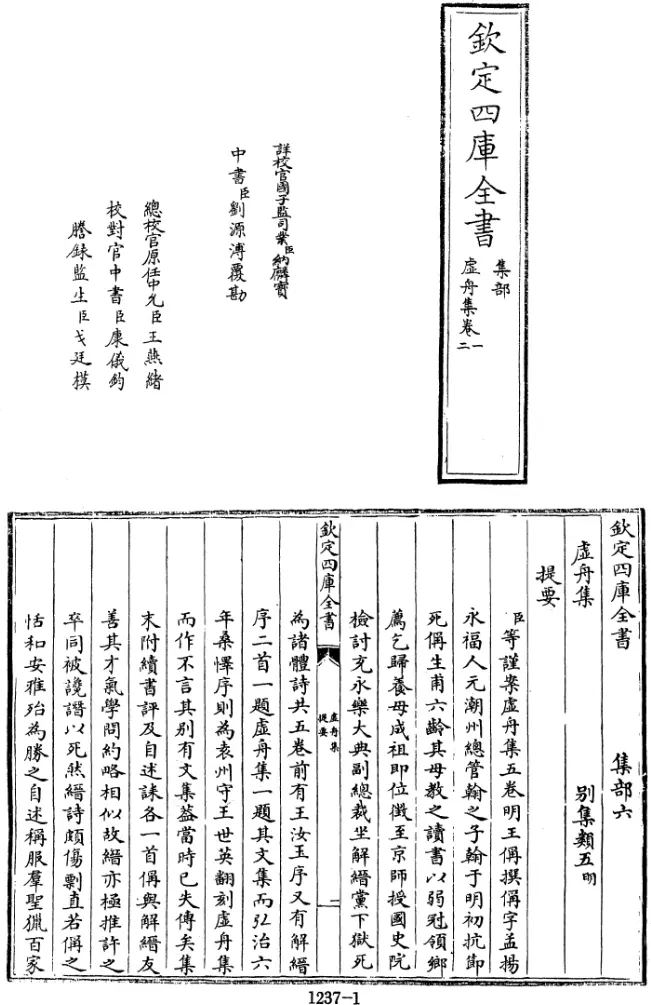 欽定四庫全書
集部
虛舟集卷一
二
詳校官國子監司業臣納麟寶
中書臣劉源溥覆勘
總校官原任中允臣王燕緒
校對官中書臣康儀鈞
謄錄監生臣戈廷模
欽定四庫全書 集部六
虛舟集 別集類五明
提要
臣等謹案虛舟集五卷明王偁撰偁字孟揚
永福人元潮州總管翰之子翰于明初抗節
死偁生甫六齡其母教之讀書以弱冠領鄉
薦乞歸養母成祖即位徵至京師授國史院
檢討充永樂大典副總裁坐解縉黨下獄死
欽定四庫全書
虛舟集
提要
一
為諸體詩共五卷前有王汝玉序又有解縉
序二首一題虛舟集一題其文集而弘治六
年桑懌序則為袁州守王世英翻刻虛舟集
而作不言其别有文集葢當時已失傳矣集
末附續書評及自述誄各一首偁與解縉友
善其才氣學問約略相似故縉亦極推許之
卒同被讒譖以死然縉詩頗傷剽直若偁之
恬和安雅殆為勝之自述稱服羣聖獵百家
1237-1